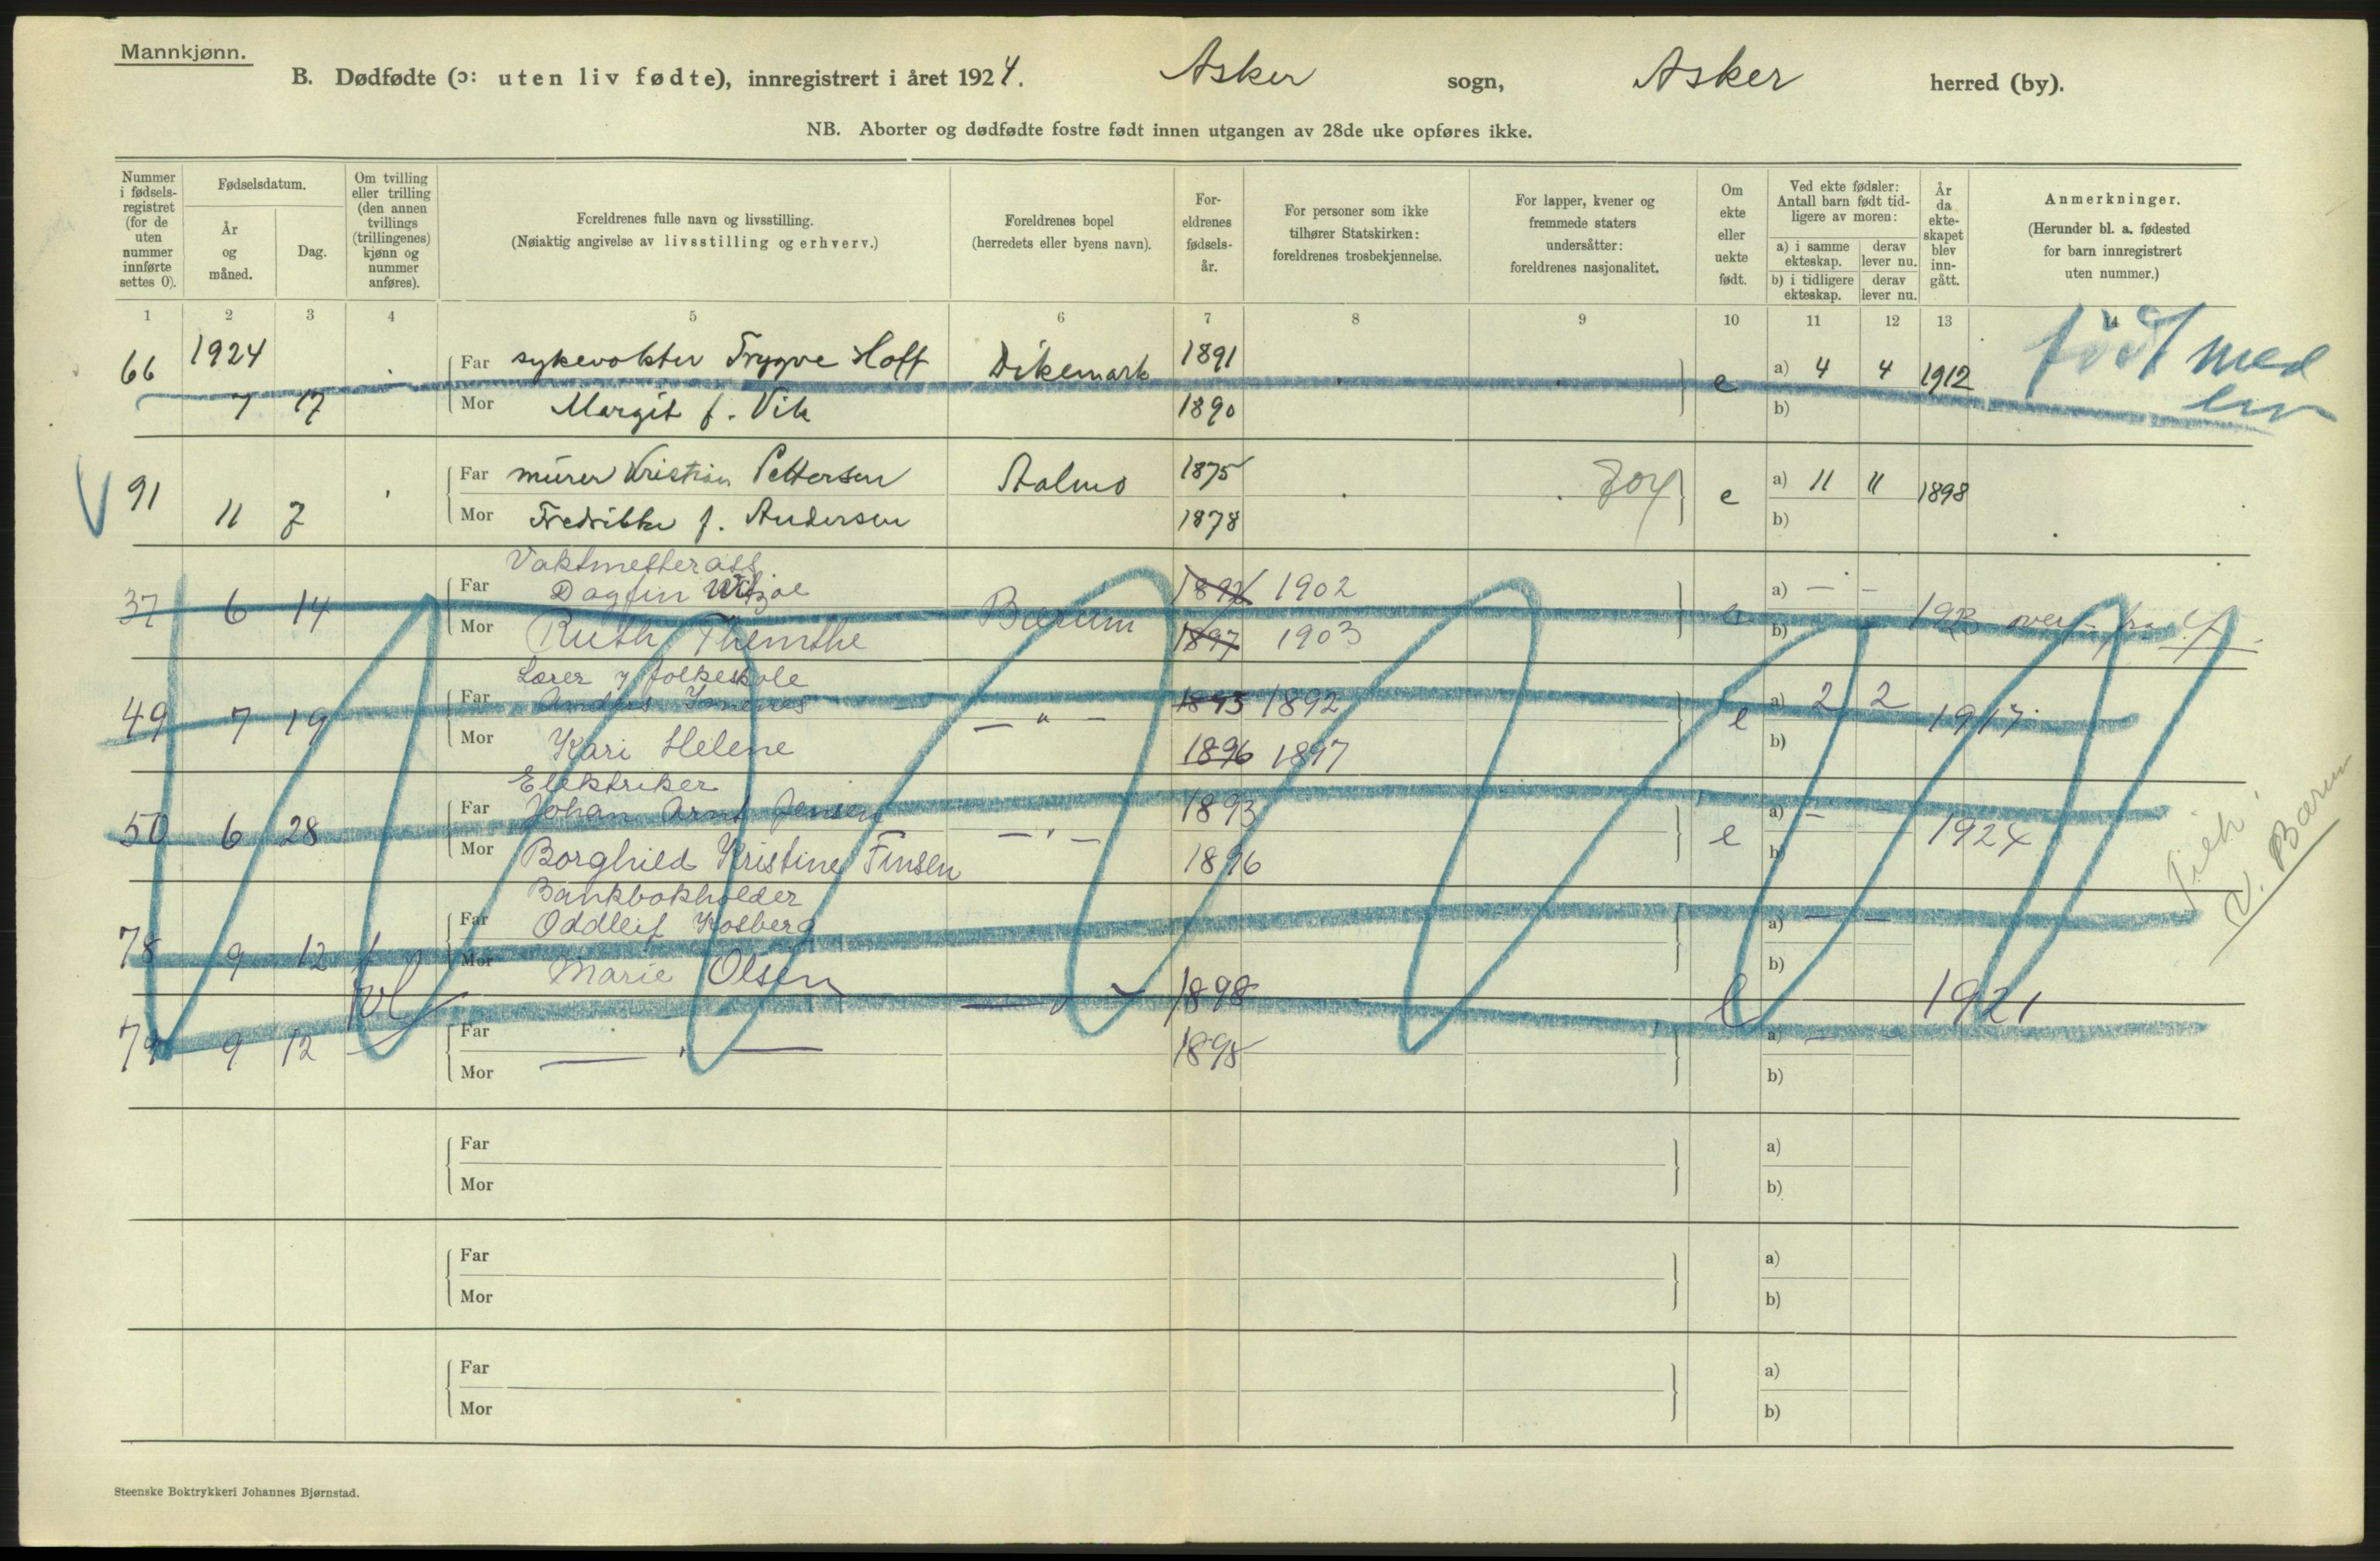 Mannkjønn.
B. Dødfødte (ɔ: uten liv fødte), innregistrert i året 1924. Asker sogn, Asker herred (by).
NB. Aborter og dødfødte fostre født innen utgangen av 28de uke opføres ikke.
Nummer i fødselsregistret (for de uten nummer innførte settes 0).
Fødselsdatum.
År og måned.
Dag.
Om tvilling eller trilling (den annen tvillings (trillingenes) kjønn og nummer anføres).
Foreldrenes fulle navn og livsstilling.
(Nøiaktig angivelse av livsstilling og erhverv.)
Foreldrenes bopel
(herredets eller byens navn).
Foreldrenes fødselsår.
For personer som ikke tilhører Statskirken: foreldrenes trosbekjennelse.
For lapper, kvener og fremmede staters undersåtter: foreldrenes nasjonalitet.
Om ekte eller uekte født.
Ved ekte fødsler: Antall barn født tidligere av moren:
a) i samme ekteskap. derav lever nu.
b) i tidligere ekteskap. derav lever nu.
År da ekteskapet blev inngått.
Anmerkninger.
(Herunder bl. a. fødested for barn innregistrert uten nummer.)
1 2 3 4 5 6 7 8 9 10 11 12 13 14
66 1924 Far sykevokter Trygve Hoff Dikemark 1891 e a) 4 4 1912 født med liv
7 17 Mor Margit f. Vik 1890 b)
V 91 11 7 Far murer Kristian Pettersen 1875 804 e a) 11 11 1898
Mor Fredrikke f. Andersen 1878 b)
Vaktmesterass.
37 6 14 Far Dagfin Bærum 1897 1902 e a) — — 1923 overf. fra
Mor Ruth 1897 1903 b)
Lærer v folkeskole
49 7 19 Far Anders — " — 1895 1892 e a) 2 2 1917
Mor Kari Helene 1896 1897 b)
Elektriker
50 6 28 Far Johan Arnt Jensen — " — 1893 e a) — 1924
Mor Borghild Kristine Finsen 1896 b)
V. Bærum
Bankbokholder
78 9 12 Far Oddleif Kosberg a) — —
Mor Marie Olsen — " — 1898 e b) 1921
79 9 12 Far — " — 1898 a) — —
Mor b)
Far a)
Mor b)
Far a)
Mor b)
Far a)
Mor b)
Steenske Boktrykkeri Johannes Bjørnstad.